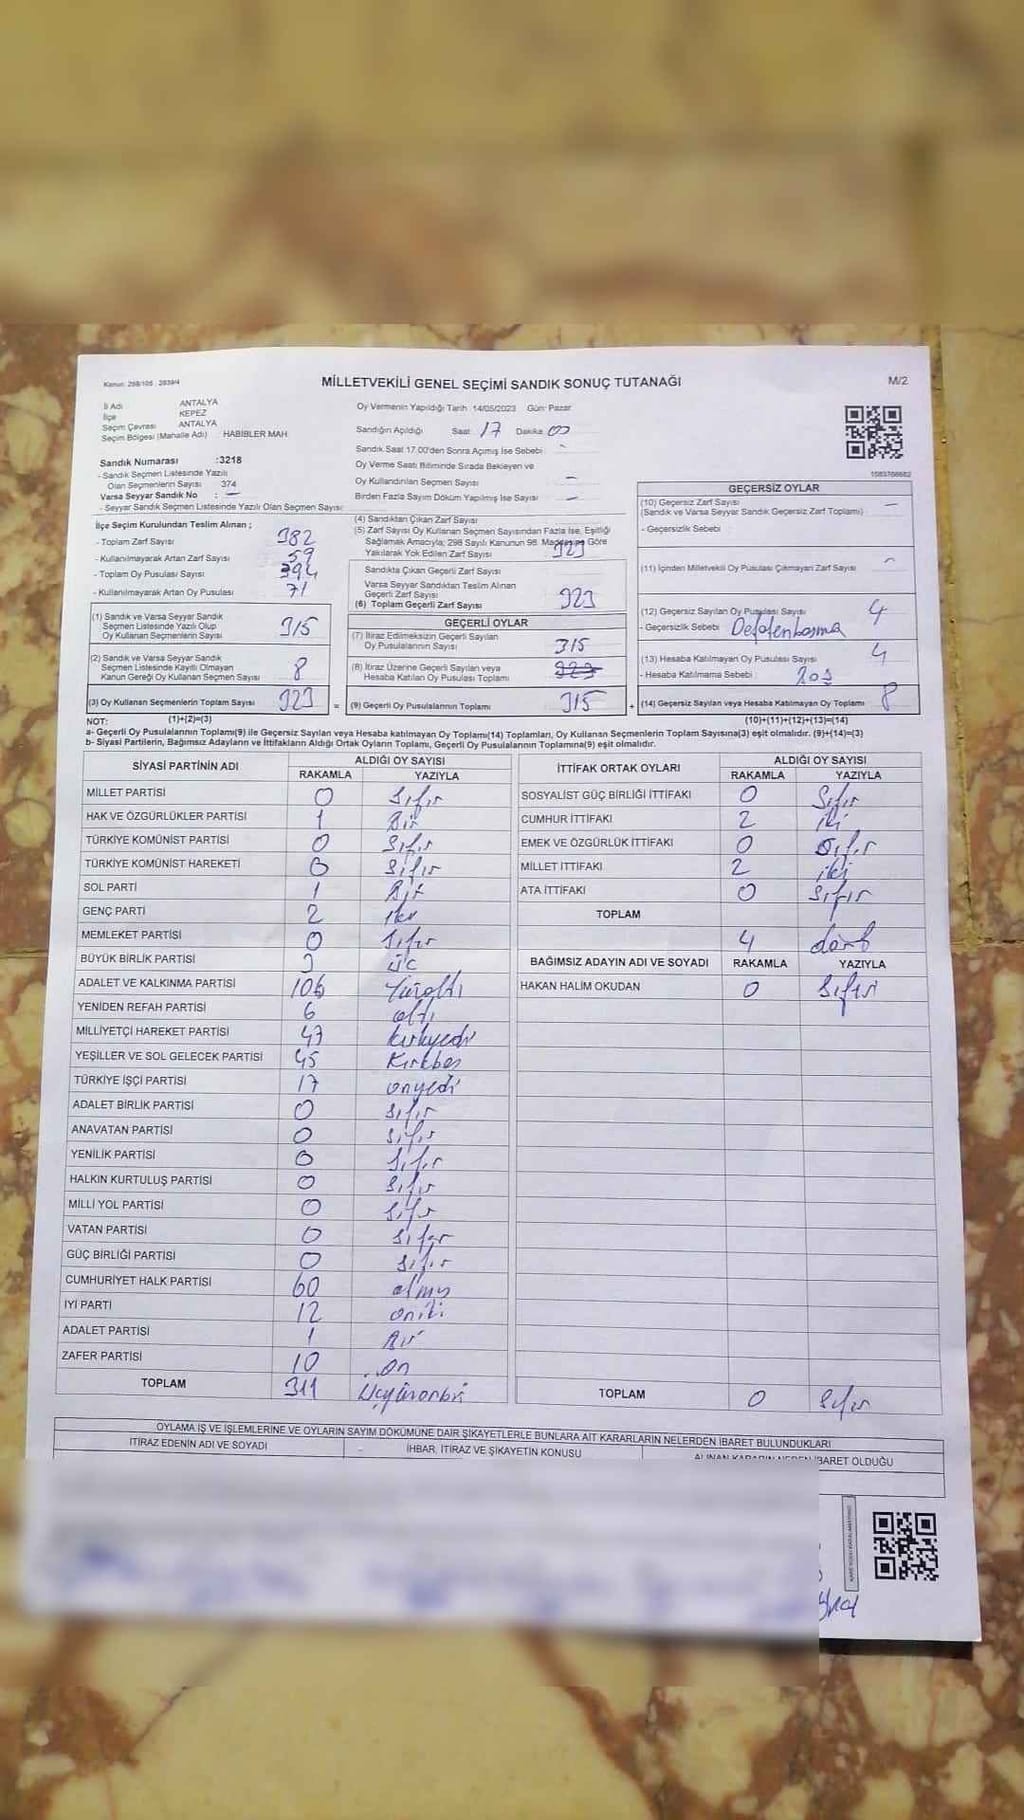 Kanun: 298/105 , 2839/4
MİLLETVEKİLİ GENEL SEÇİMİ SANDIK SONUÇ TUTANAĞI
M/2
İl Adı ANTALYA
İlçe KEPEZ
Seçim Çevresi ANTALYA
Seçim Bölgesi (Mahalle Adı) HABİBLER MAH.
Sandık Numarası :3218
- Sandık Seçmen Listesinde Yazılı
Olan Seçmenlerin Sayısı 374
Varsa Seyyar Sandık No : —
- Seyyar Sandık Seçmen Listesinde Yazılı Olan Seçmen Sayısı
Oy Vermenin Yapıldığı Tarih 14/05/2023 Gün: Pazar
Sandığın Açıldığı Saat 17 Dakika 00
Sandık Saat 17.00'den Sonra Açılmış İse Sebebi -
Oy Verme Saati Bitiminde Sırada Bekleyen ve
Oy Kullandırılan Seçmen Sayısı —
Birden Fazla Sayım Döküm Yapılmış İse Sayısı —
1083766682
İlçe Seçim Kurulundan Teslim Alınan ;
- Toplam Zarf Sayısı 382
- Kullanılmayarak Artan Zarf Sayısı 59
- Toplam Oy Pusulası Sayısı 394
- Kullanılmayarak Artan Oy Pusulası 71
(1) Sandık ve Varsa Seyyar Sandık
Seçmen Listesinde Yazılı Olup
Oy Kullanan Seçmenlerin Sayısı 315
(2) Sandık ve Varsa Seyyar Sandık
Seçmen Listesinde Kayıtlı Olmayan
Kanun Gereği Oy Kullanan Seçmen Sayısı 8
(3) Oy Kullanan Seçmenlerin Toplam Sayısı 323 =
(4) Sandıktan Çıkan Zarf Sayısı
(5) Zarf Sayısı Oy Kullanan Seçmen Sayısından Fazla İse, Eşitliği
Sağlamak Amacıyla; 298 Sayılı Kanunun 98. Maddesine Göre
Yakılarak Yok Edilen Zarf Sayısı 323
Sandıkta Çıkan Geçerli Zarf Sayısı
Varsa Seyyar Sandıktan Teslim Alınan
Geçerli Zarf Sayısı
(6) Toplam Geçerli Zarf Sayısı 323
GEÇERLİ OYLAR
(7) İtiraz Edilmeksizin Geçerli Sayılan
Oy Pusulalarının Sayısı 315
(8) İtiraz Üzerine Geçerli Sayılan veya
Hesaba Katılan Oy Pusulası Toplamı 323
(9) Geçerli Oy Pusulalarının Toplamı 315 +
GEÇERSİZ OYLAR
(10) Geçersiz Zarf Sayısı —
(Sandık ve Varsa Seyyar Sandık Geçersiz Zarf Toplamı)
- Geçersizlik Sebebi
(11) İçinden Milletvekili Oy Pusulası Çıkmayan Zarf Sayısı -
(12) Geçersiz Sayılan Oy Pusulası Sayısı 4
- Geçersizlik Sebebi
(13) Hesaba Katılmayan Oy Pusulası Sayısı 4
- Hesaba Katılmama Sebebi
(14) Geçersiz Sayılan veya Hesaba Katılmayan Oy Toplamı 8
NOT: (1)+(2)=(3) (10)+(11)+(12)+(13)=(14)
a- Geçerli Oy Pusulalarının Toplamı(9) ile Geçersiz Sayılan veya Hesaba katılmayan Oy Toplamı(14) Toplamları, Oy Kullanan Seçmenlerin Toplam Sayısına(3) eşit olmalıdır. (9)+(14)=(3)
b- Siyasi Partilerin, Bağımsız Adayların ve İttifakların Aldığı Ortak Oyların Toplamı, Geçerli Oy Pusulalarının Toplamına(9) eşit olmalıdır.
SİYASİ PARTİNİN ADI ALDIĞI OY SAYISI
RAKAMLA YAZIYLA
MİLLET PARTİSİ 0 Sıfır
HAK VE ÖZGÜRLÜKLER PARTİSİ 1 Bir
TÜRKİYE KOMÜNİST PARTİSİ 0 Sıfır
TÜRKİYE KOMÜNİST HAREKETİ 0 Sıfır
SOL PARTİ 1 Bir
GENÇ PARTİ 2 iki
MEMLEKET PARTİSİ 0 Sıfır
BÜYÜK BİRLİK PARTİSİ 3 üç
ADALET VE KALKINMA PARTİSİ 106 Yüzaltı
YENİDEN REFAH PARTİSİ 6 altı
MİLLİYETÇİ HAREKET PARTİSİ 47 kırkyedi
YEŞİLLER VE SOL GELECEK PARTİSİ 45 Kırkbeş
TÜRKİYE İŞÇİ PARTİSİ 17 onyedi
ADALET BİRLİK PARTİSİ 0 sıfır
ANAVATAN PARTİSİ 0 sıfır
YENİLİK PARTİSİ 0 sıfır
HALKIN KURTULUŞ PARTİSİ 0 sıfır
MİLLİ YOL PARTİSİ 0 sıfır
VATAN PARTİSİ 0 sıfır
GÜÇ BİRLİĞİ PARTİSİ 0 sıfır
CUMHURİYET HALK PARTİSİ 60 altmış
İYİ PARTİ 12 oniki
ADALET PARTİSİ 1 Bir
ZAFER PARTİSİ 10 on
TOPLAM 311 Üçyüzonbir
İTTİFAK ORTAK OYLARI ALDIĞI OY SAYISI
RAKAMLA YAZIYLA
SOSYALİST GÜÇ BİRLİĞİ İTTİFAKI 0 Sıfır
CUMHUR İTTİFAKI 2 iki
EMEK VE ÖZGÜRLÜK İTTİFAKI 0 Sıfır
MİLLET İTTİFAKI 2 iki
ATA İTTİFAKI 0 Sıfır
TOPLAM
4 dört
BAĞIMSIZ ADAYIN ADI VE SOYADI RAKAMLA YAZIYLA
HAKAN HALİM OKUDAN 0 Sıfır
TOPLAM 0 Sıfır
OYLAMA İŞ VE İŞLEMLERİNE VE OYLARIN SAYIM DÖKÜMÜNE DAİR ŞİKAYETLERLE BUNLARA AİT KARARLARIN NELERDEN İBARET BULUNDUKLARI
İTİRAZ EDENİN ADI VE SOYADI İHBAR, İTİRAZ VE ŞİKAYETİN KONUSU ALINAN KARARIN NEDEN İBARET OLDUĞU